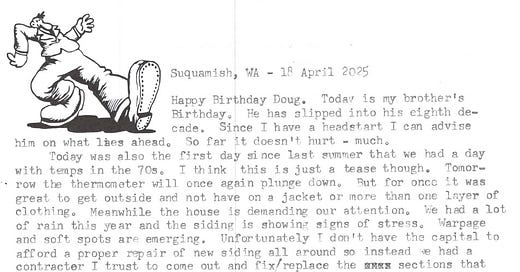 Suquamish, WA - 18 April 2025
Happy Birthday Doug. Today is my brother's
Birthday. He has slipped into his eighth de-
cade. Since I have a headstart I can advise
him on what lies ahead. So far it doesn't hurt - much.
Today was also the first day since last summer that we had a day
with temps in the 70s. I think this is just a tease though. Tomor-
row the thermometer will once again plunge down. But for once it was
great to get outside and not have on a jacket or more than one layer of
clothing. Meanwhile the house is demanding our attention. We had a lot
of rain this year and the siding is showing signs of stress. Warpage
and soft spots are emerging. Unfortunately I don't have the capital to
afford a proper repair of new siding all around so instead we had a
contractor I trust to come out and fix/replace the sections that